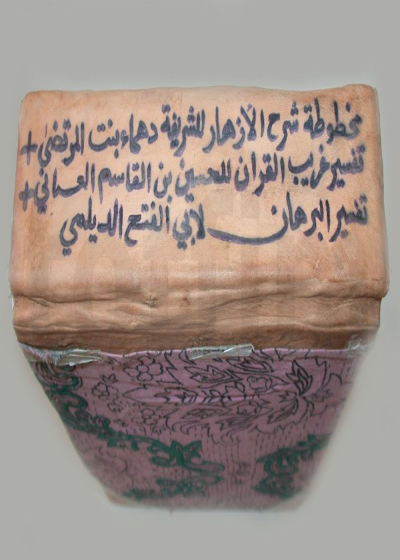 مخطوطة شرح الأزهار للشريفة دهماء بنت المرتضى +
تفسير غريب القرآن للحسين بن القاسم العياني +
تفسير البرهان لأبي الفتح الديلمي